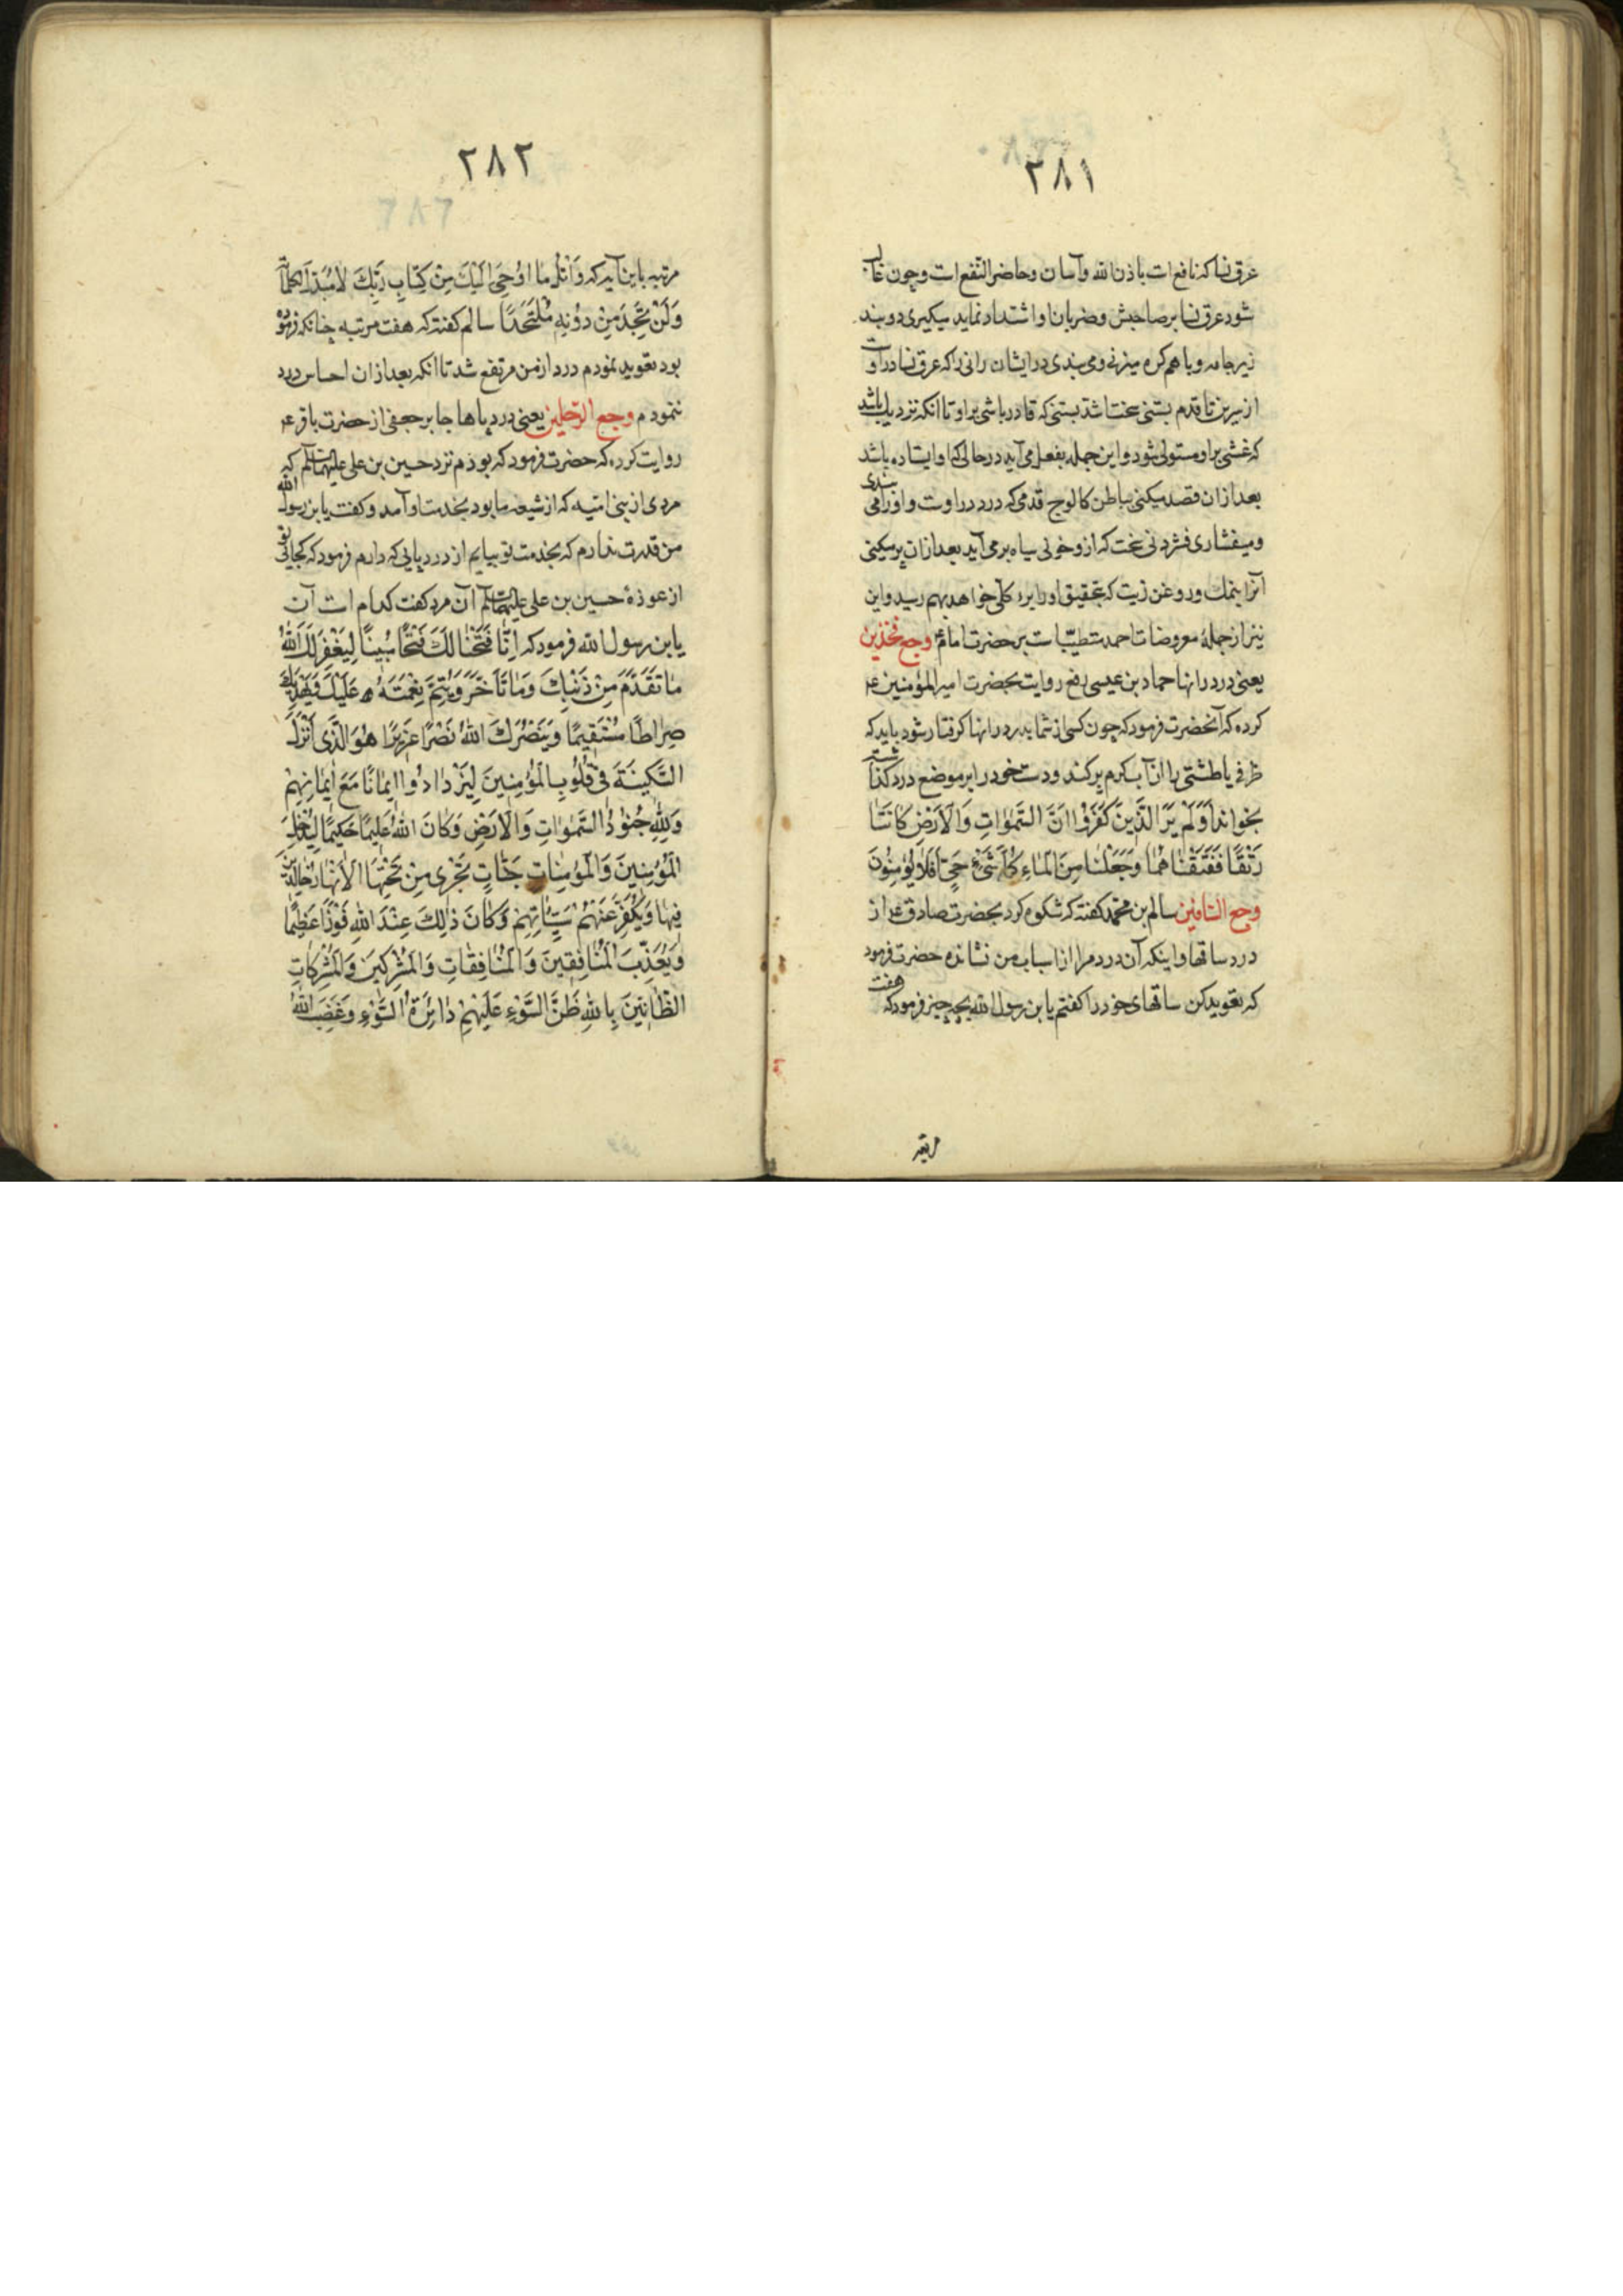 ٢٨١
عرق نسا که نافع است باذن الله وآسان وحاضر النفع است وچون غالب
شود عرق نسا بر صاحبش وضربان او اشتداد نماید میکیری دو بند
زیر جامه وباهم کره میزنی ومی بندی در ایشان رانی را که عرق نسا در اوست
از بن ران تا قدم بستنی سخت اشد بستنی که قادر باشی بر او تا آنکه نزدیك باشد
که غشی بر او مستولی شود واین جمله بفعل می آید در حالی که او ایستاده باشد
بعد ازان قصد میکنی بباطن کالوج قدمی که درد در اوست واورا می بندی
ومیفشاری فشردنی سخت که ازو خونی سیاه بر می آید بعد ازان پر میکنی
آنرا بنمك وروغن زیت که بتحقیق اورا برء کلی خواهد بهم رسید واین
نیز از جملهٔ معروضات احمد متطبّب است بر حضرت امام ع وجع فخذین
یعنی درد رانها حماد بن عیسی رفع روایت بحضرت امیر المؤمنین ع
کرده که آنحضرت فرمود که چون کسی از شما بدرد رانها کرفتار شود باید که
ظرفی یا طشتی را از آب کرم پر کند ودست خود را بر موضع درد کذاشته
بخواند اَوَلَمْ یَرَ الَّذینَ کَفَرُوا اَنَّ السَّمٰوَاتِ وَالْاَرْضَ کَانَتَا
رَتْقًا فَفَتَقْنَاهُمَا وَجَعَلْنَا مِنَ الْمَاءِ کُلَّ شَیْءٍ حَیٍّ اَفَلَا یُؤْمِنُونَ
وجع السّاقین سالم بن محمّد کفته که شکوه کردم بحضرت صادق ع از
درد ساقها واینکه آن درد مرا از اسباب من نشانده حضرت فرمود
که تعوید کن ساقهای خود را کفتم یابن رسول الله بچه چیز فرمود که هفت
مرتبه
٢٨٢
مرتبه باین آیه که وَاتْلُ مَا اُوحِیَ اِلَیْكَ مِنْ کِتَابِ رَبِّكَ لَا مُبَدِّلَ لِکَلِمَاتِهِ
وَلَنْ تَجِدَ مِنْ دُونِهِ مُلْتَحَدًا سالم کفته که هفت مرتبه چنانکه فرموده
بود تعوید نمودم درد از من مرتفع شد تا آنکه بعد ازان احساس درد
ننمودم وجع الرّجلین یعنی درد پاها جابر جعفی از حضرت باقر ع
روایت کرده که حضرت فرمود که بودم نزد حسین بن علی علیهما السلام که
مردی از بنی امیّه که از شیعه ما بود بخدمت او آمد وکفت یابن رسول الله
من قدرت ندارم که بخدمت تو بیایم از درد پایی که دارم فرمود که کجائی تو
از عوذهٔ حسین بن علی علیهما السلام آن مرد کفت کدام است آن
یابن رسول الله فرمود که اِنَّا فَتَحْنَا لَكَ فَتْحًا مُبِینًا لِیَغْفِرَ لَكَ اللهُ
مَا تَقَدَّمَ مِنْ ذَنْبِكَ وَمَا تَاَخَّرَ وَیُتِمَّ نِعْمَتَهُ عَلَیْكَ وَیَهْدِیَكَ
صِرَاطًا مُسْتَقِیمًا وَیَنْصُرَكَ اللهُ نَصْرًا عَزِیزًا هُوَ الَّذِی اَنْزَلَ
السَّکِینَةَ فِی قُلُوبِ الْمُؤْمِنِینَ لِیَزْدَادُوا اِیمَانًا مَعَ اِیمَانِهِمْ
وَلِلّهِ جُنُودُ السَّمٰوَاتِ وَالْاَرْضِ وَکَانَ اللهُ عَلِیمًا حَکِیمًا لِیُدْخِلَ
الْمُؤْمِنِینَ وَالْمُؤْمِنَاتِ جَنَّاتٍ تَجْرِی مِنْ تَحْتِهَا الْاَنْهَارُ خَالِدِینَ
فِیهَا وَیُکَفِّرَ عَنْهُمْ سَیِّئَاتِهِمْ وَکَانَ ذٰلِكَ عِنْدَ اللهِ فَوْزًا عَظِیمًا
وَیُعَذِّبَ الْمُنَافِقِینَ وَالْمُنَافِقَاتِ وَالْمُشْرِکِینَ وَالْمُشْرِکَاتِ
الظَّانِّینَ بِاللهِ ظَنَّ السَّوْءِ عَلَیْهِمْ دَائِرَةُ السَّوْءِ وَغَضِبَ اللهُ